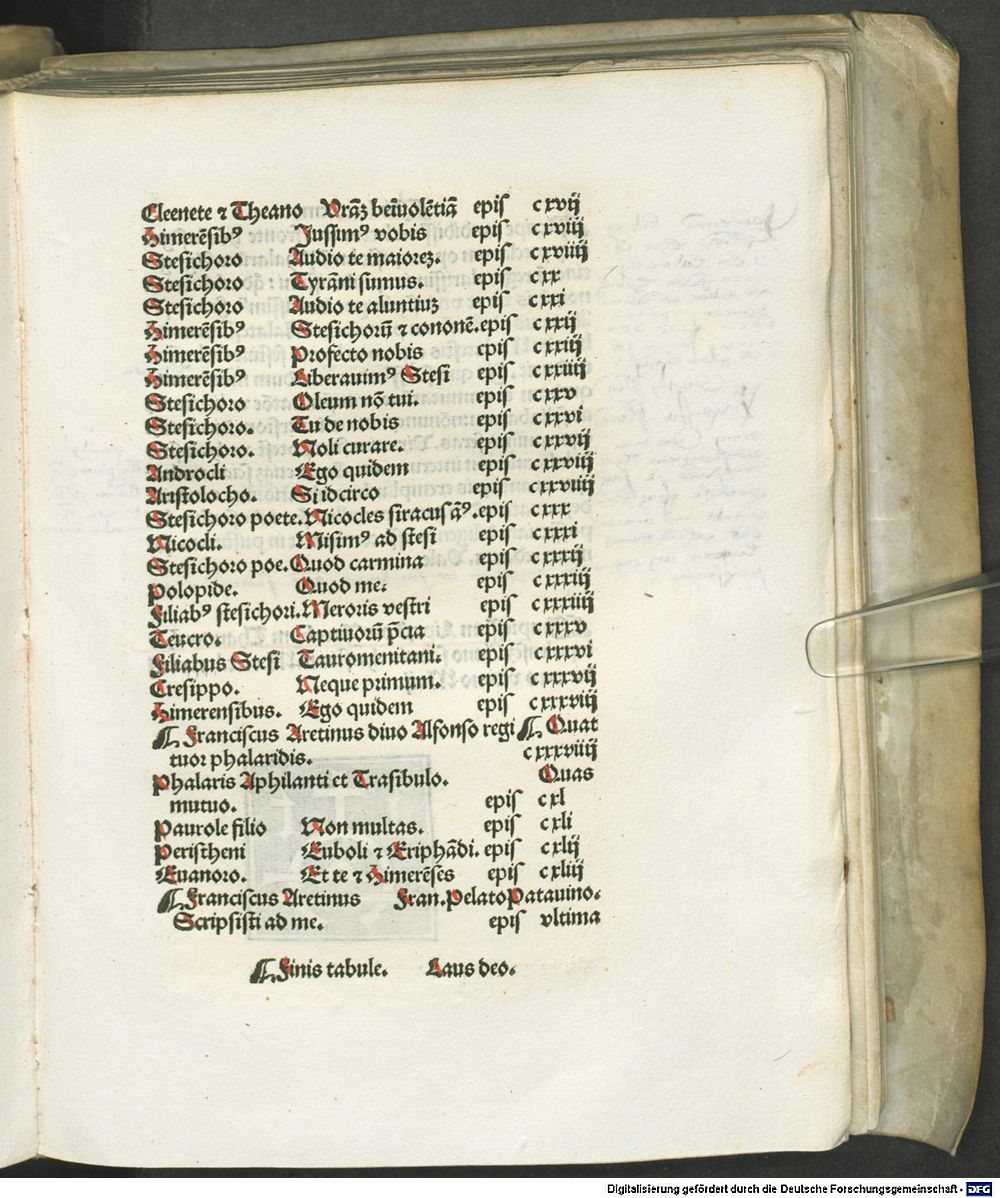 Cleenete ⁊ Theano Vrāꝫ beīuolētiā epiſ cxvij
Himerēſibꝰ Juſſimꝰ vobis epiſ cxviij
Steſichoro Audio te maiorez. epiſ cxviiij
Steſichoro Tyrāni ſumus. epiſ cxx
Steſichoro Audio te aluntiuꝫ epiſ cxxi
Himerēſibꝰ Steſichorū ⁊ cononē. epiſ cxxij
Himerēſibꝰ Profecto nobis epiſ cxxiij
Himerēſibꝰ Liberauimꝰ Steſi epiſ cxxiiij
Steſichoro Oleum nō tui. epiſ cxxv
Steſichoro. Tu de nobis epiſ cxxvi
Steſichoro. Noli curare. epiſ cxxvij
Androcli Ego quidem epiſ cxxviij
Ariſtolocho. Si idcirco epiſ cxxviiij
Steſichoro poete. Nicocles ſiracuſāꝰ. epiſ cxxx
Nicocli. Miſimꝰ ad ſteſi epiſ cxxxi
Steſichoro poe. Quod carmina epiſ cxxxij
Polopide. Quod me. epiſ cxxxiij
Filiabꝰ ſteſichori. Meroris veſtri epiſ cxxxiiij
Teucro. Captiuorū p̄cia epiſ cxxxv
Filiabus Steſi Tauromenitani. epiſ cxxxvi
Creſippo. Neque primum. epiſ cxxxvij
Himerenſibus. Ego quidem epiſ cxxxviij
¶ Franciſcus Aretinus diuo Alfonſo regi ¶ Quat
tuor phalaridis. cxxxviiij
Phalaris Aphilanti et Traſibulo. Quas
mutuo. epiſ cxl
Paurole filio Non multas. epiſ cxli
Periſtheni Euboli ⁊ Eriphādi. epiſ cxlij
Euanoro. Et te ⁊ Himerēſes epiſ cxliij
¶ Franciſcus Aretinus Fran. Pelato Patauino.
Scripſiſti ad me. epiſ vltima
¶ Finis tabule. Laus deo.
Digitalisierung gefördert durch die Deutsche Forschungsgemeinschaft - DFG